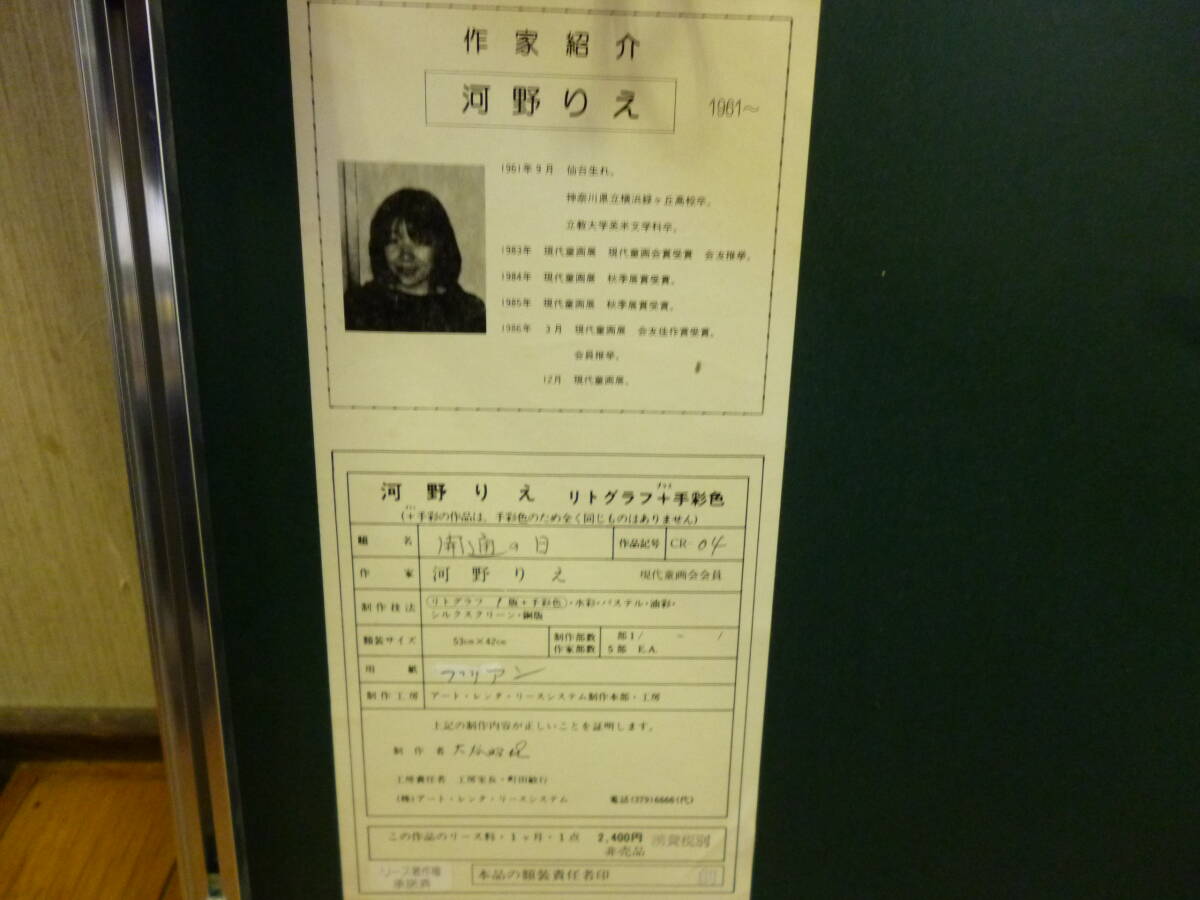 作家紹介
河野りえ 1961〜
1961年9月 仙台生れ。
神奈川県立横浜緑ヶ丘高校卒。
立教大学英米文学科卒。
1983年 現代童画展 現代童画会賞受賞 会友推挙。
1984年 現代童画展 秋季展賞受賞。
1985年 現代童画展 秋季展賞受賞。
1986年 3月 現代童画展 会友佳作賞受賞。
会員推挙。
12月 現代童画展。
河野りえ リトグラフ+手彩色
(+手彩の作品は、手彩色のため全く同じものはありません)
題名 開通の日 作品記号 CR-04
作家 河野りえ 現代童画会会員
制作技法 リトグラフ 1版+手彩色・水彩・パステル・油彩・
シルクスクリーン・銅版
額装サイズ 53cm×42cm 制作部数 部 1/ - /
作家部数 5部 E.A.
用紙
制作工房 アート・レンタ・リースシステム制作本部・工房
上記の制作内容が正しいことを証明します。
制作者
工房責任者 工房家長・町田敏行
(株)アート・レンタ・リースシステム 電話(379)6666(代)
この作品のリース料・1ヶ月・1点 2,400円 消費税別
非売品
リース著作権
承認済
本品の額装責任者印